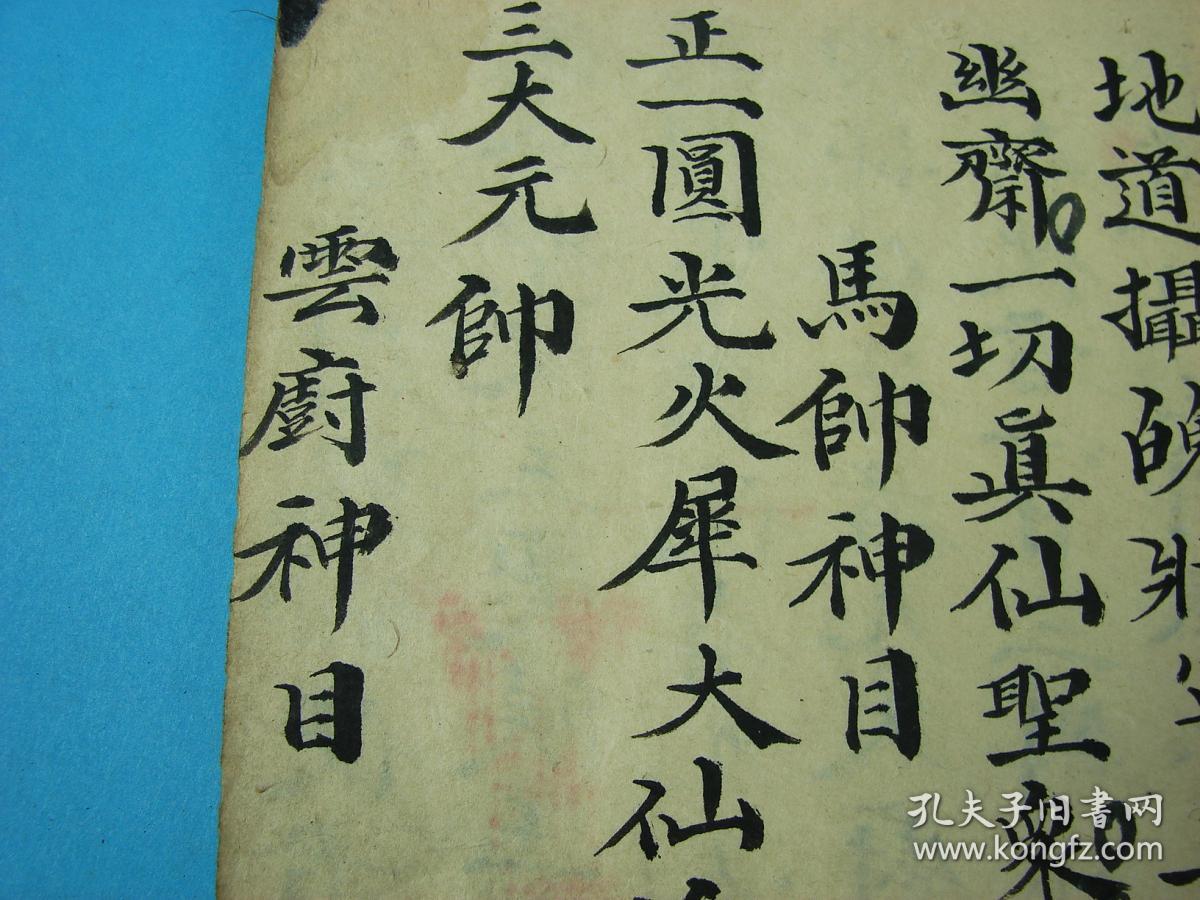 地道攝魄
幽齋一切眞仙聖衆
馬帥神目
正一圓光火犀大仙
三大元帥
雲廚神目
孔夫子旧书网
www.kongfz.com